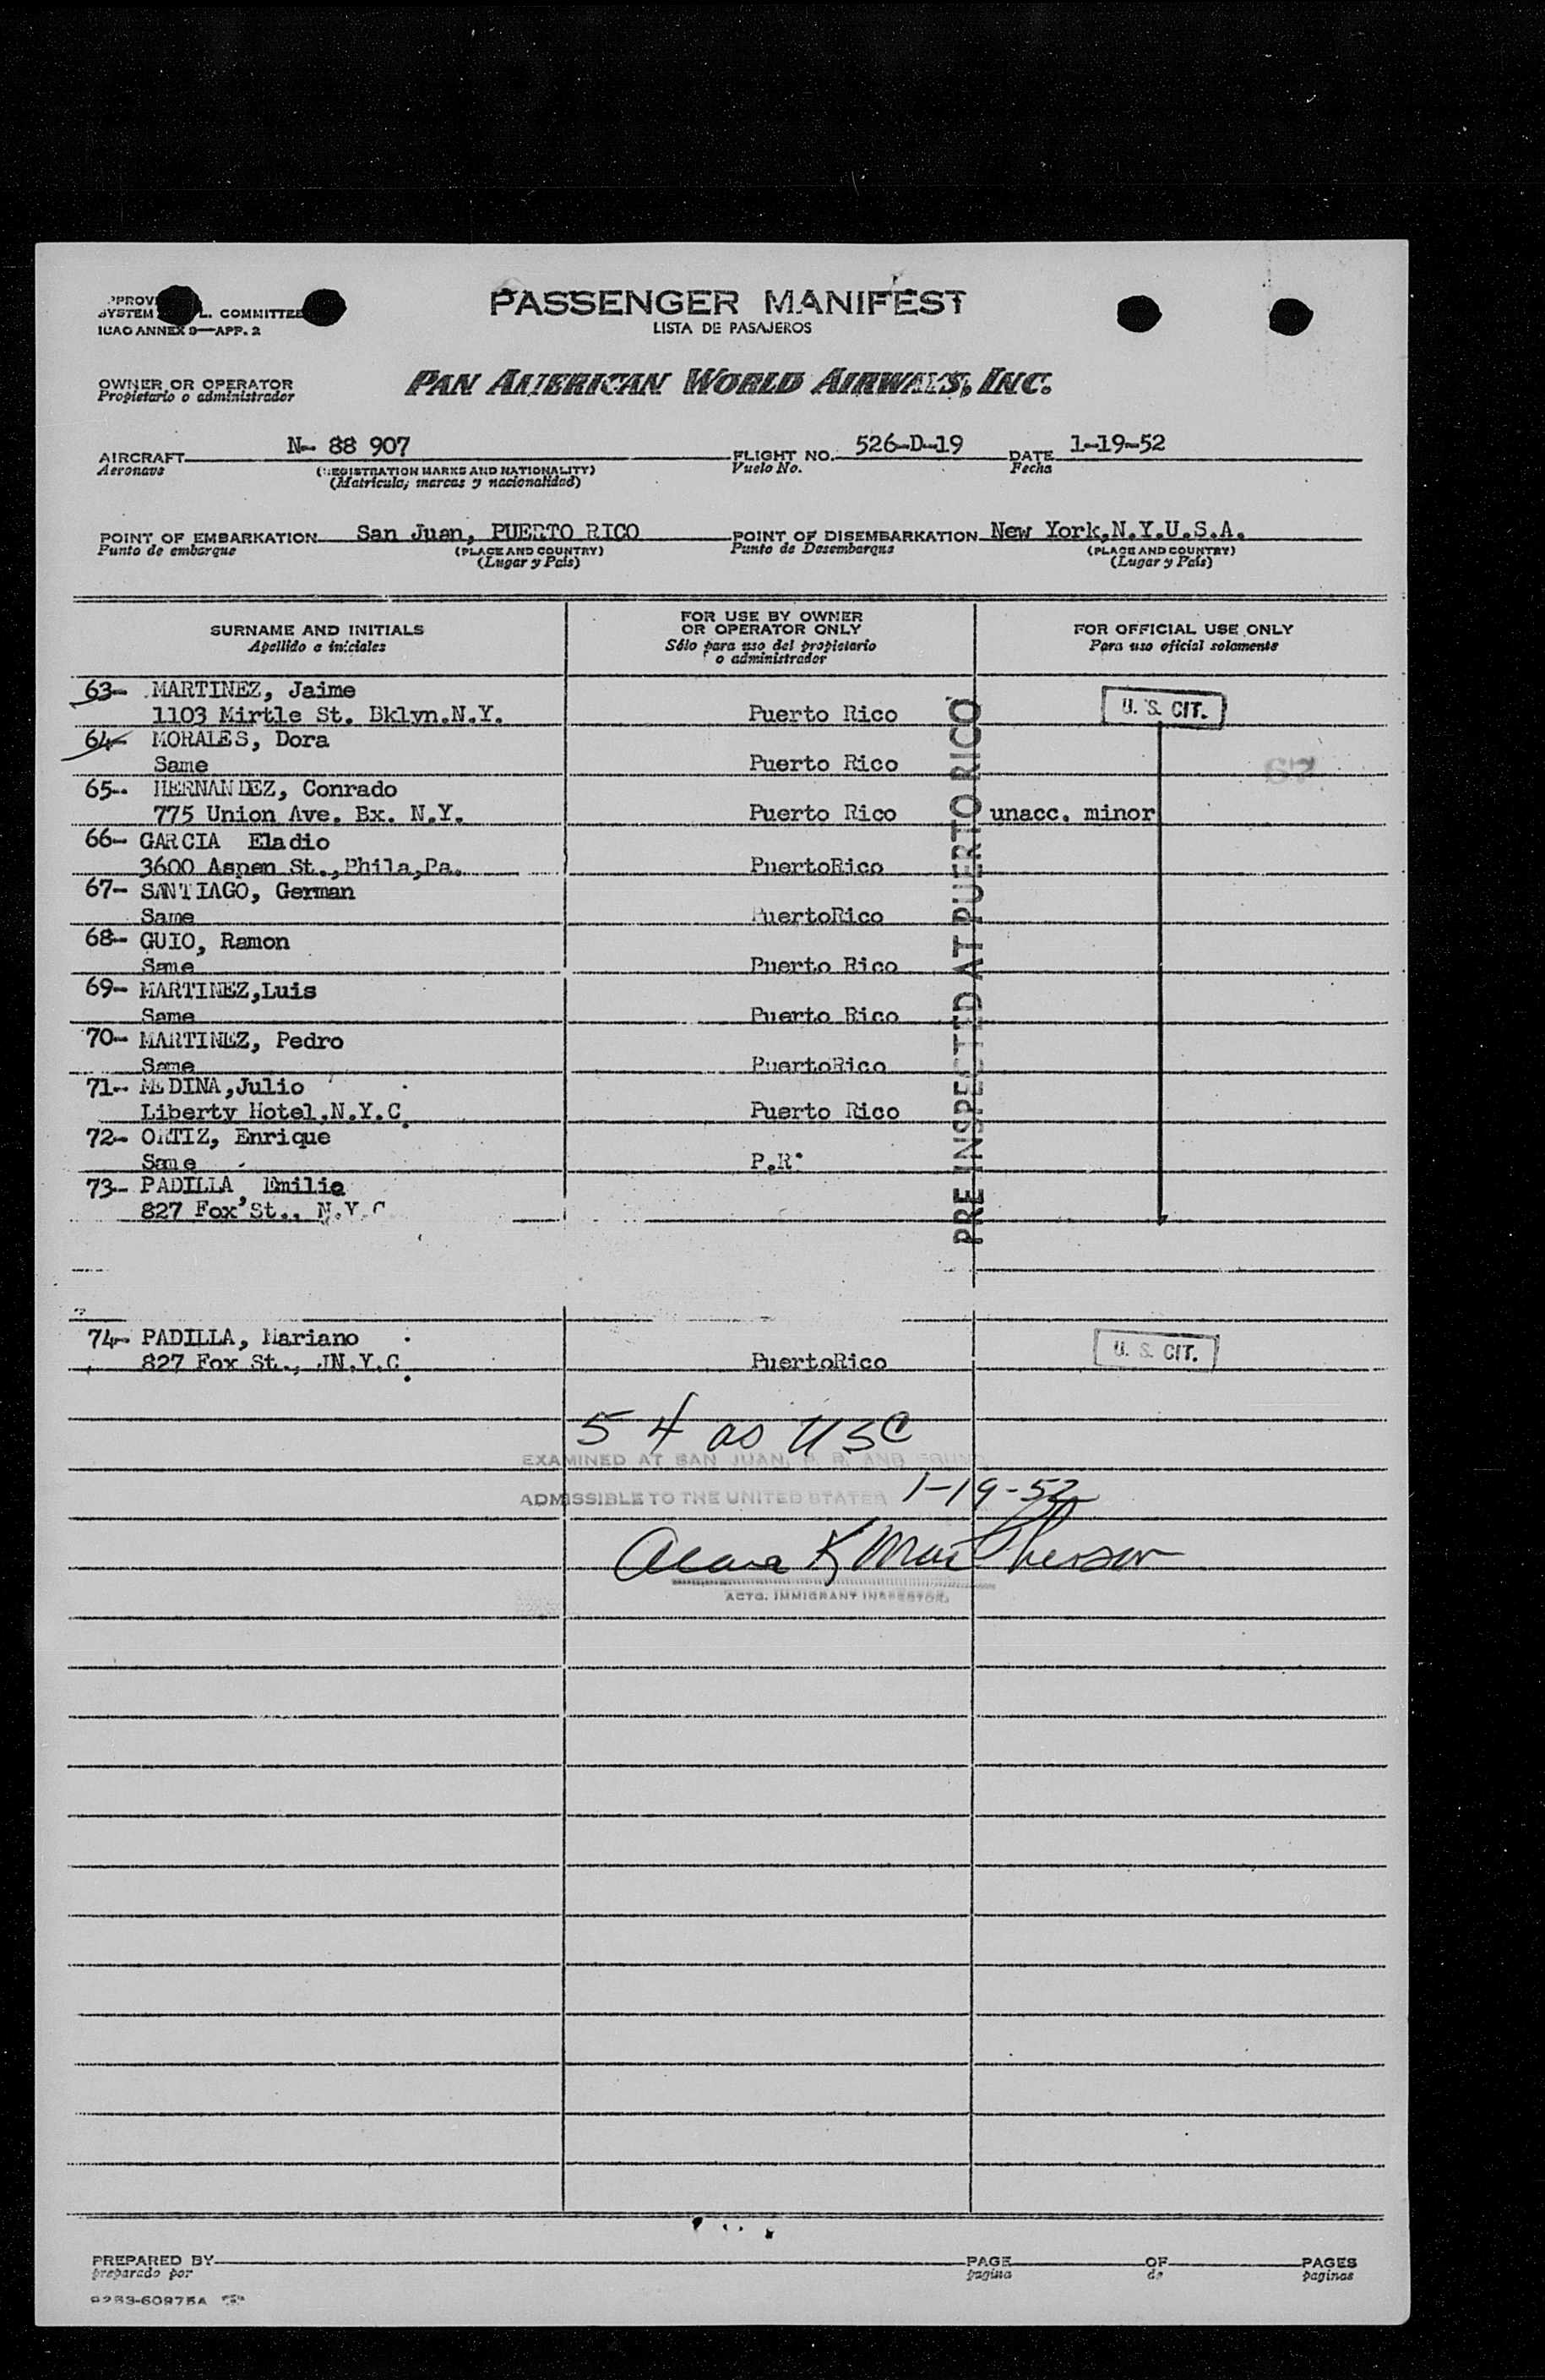 SYSTEM L. COMMITTEE
ICAO ANNEX 9—APP. 2
PASSENGER MANIFEST
LISTA DE PASAJEROS
OWNER OR OPERATOR
Propietario o administrador
PAN AMERICAN WORLD AIRWAYS, INC.
AIRCRAFT N- 88 907 FLIGHT NO. 526-D-19 DATE 1-19-52
Aeronave (REGISTRATION MARKS AND NATIONALITY) Vuelo No. Fecha
(Matrícula, marcas y nacionalidad)
POINT OF EMBARKATION San Juan, PUERTO RICO POINT OF DISEMBARKATION New York,N.Y.U.S.A.
Punto de embarque (PLACE AND COUNTRY) Punto de Desembarque (PLACE AND COUNTRY)
(Lugar y País) (Lugar y País)
SURNAME AND INITIALS
Apellido e iniciales
FOR USE BY OWNER
OR OPERATOR ONLY
Sólo para uso del propietario
o administrador
FOR OFFICIAL USE ONLY
Para uso oficial solamente
63- MARTINEZ, Jaime
1103 Mirtle St. Bklyn.N.Y. Puerto Rico U. S. CIT.
64- MORALES, Dora
Same Puerto Rico 67
65-- HERNANDEZ, Conrado
775 Union Ave. Bx. N.Y. Puerto Rico unacc. minor
66- GARCIA Eladio
3600 Aspen St.,Phila,Pa. PuertoRico
67- SANTIAGO, German
Same PuertoRico
68- GUIO, Ramon
Same Puerto Rico
69- MARTINEZ,Luis
Same Puerto Rico
70- MARTINEZ, Pedro
Same PuertoRico
71-- MEDINA,Julio
Liberty Hotel,N.Y.C. Puerto Rico
72- ORTIZ, Enrique
Same P.R.
73- PADILLA, Emilie
827 Fox St., N.Y.C
PRE INSPECTED AT PUERTO RICO
74- PADILLA, Mariano
827 Fox St., JN.Y.C. PuertoRico U. S. CIT.
54 as USC
EXAMINED AT SAN JUAN, P. R. AND FOUND
ADMISSIBLE TO THE UNITED STATES 1-19-52
ACTG. IMMIGRANT INSPECTOR.
PREPARED BY PAGE OF PAGES
preparado por pagina de paginas